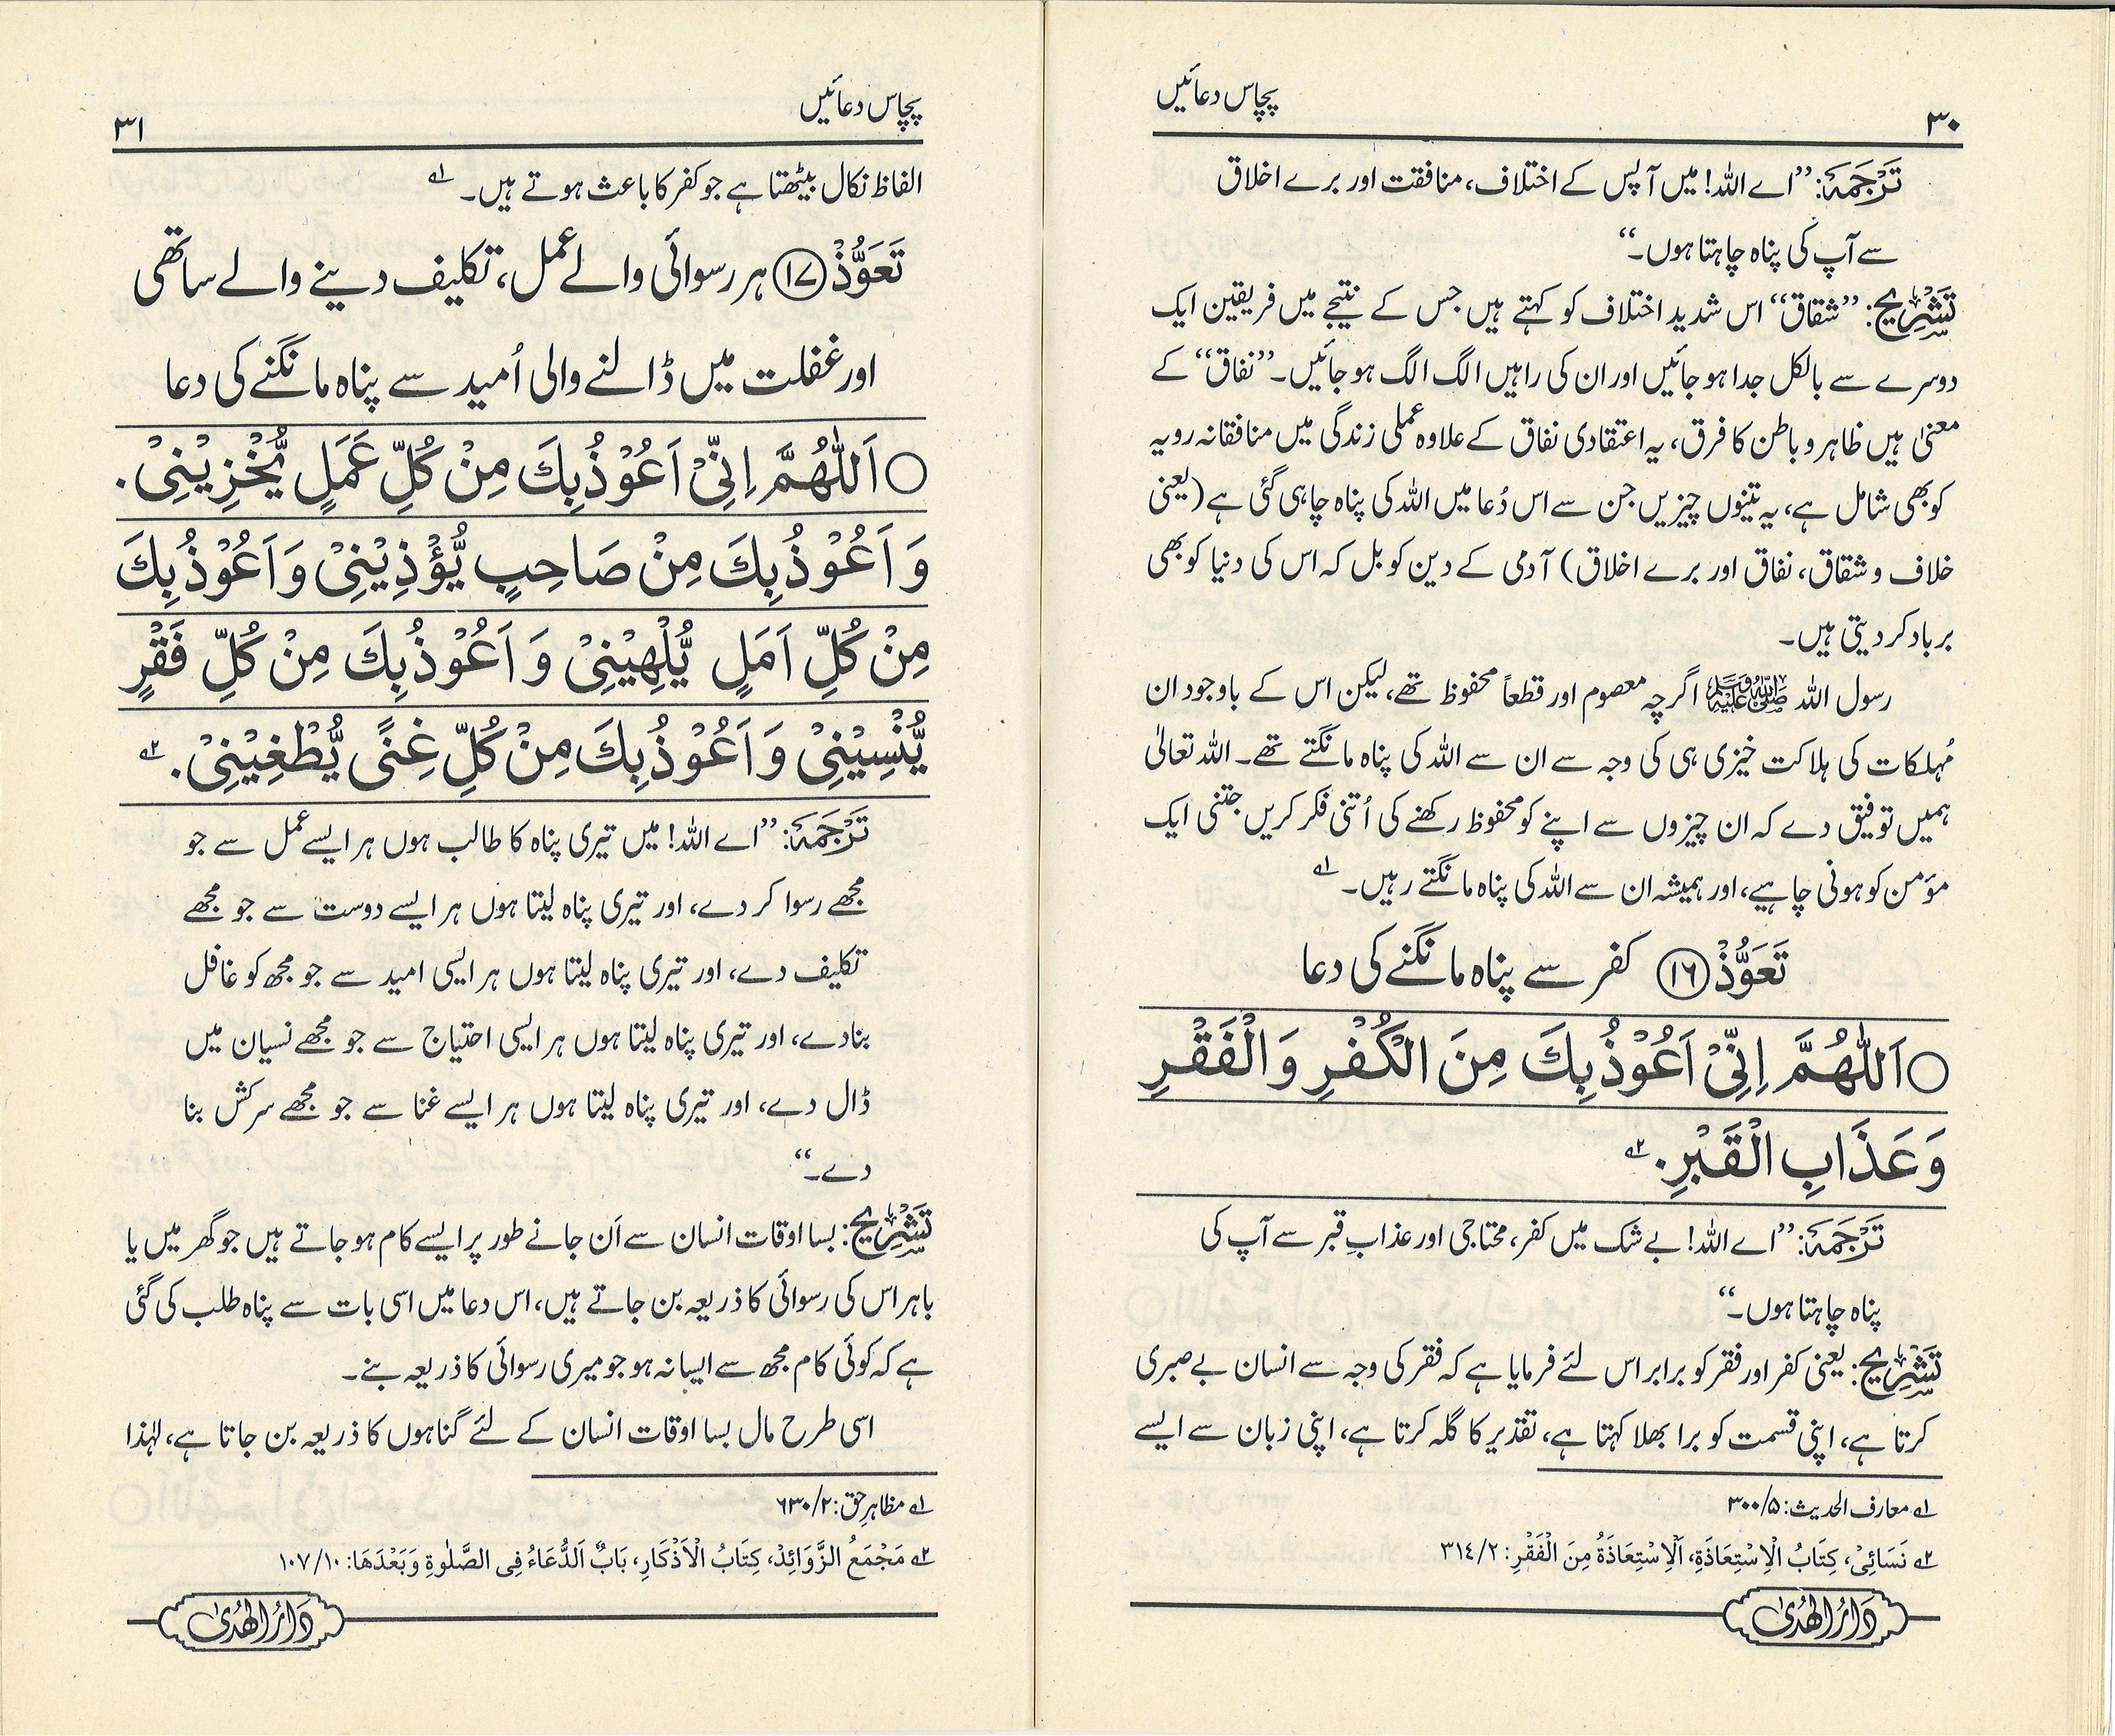 ۳۰
پچاس دعائیں
تَرْجَمَہٗ: ”اے اللہ! میں آپس کے اختلاف، منافقت اور برے اخلاق
سے آپ کی پناہ چاہتا ہوں۔“
تَشْرِیْح: ”شقاق“ اس شدید اختلاف کو کہتے ہیں جس کے نتیجے میں فریقین ایک
دوسرے سے بالکل جدا ہو جائیں اور ان کی راہیں الگ الگ ہو جائیں۔ ”نفاق“ کے
معنیٰ ہیں ظاہر و باطن کا فرق، یہ اعتقادی نفاق کے علاوہ عملی زندگی میں منافقانہ رویہ
کو بھی شامل ہے، یہ تینوں چیزیں جن سے اس دُعا میں اللہ کی پناہ چاہی گئی ہے (یعنی
خلاف و شقاق، نفاق اور برے اخلاق) آدمی کے دین کو بل کہ اس کی دنیا کو بھی
برباد کر دیتی ہیں۔
رسول اللہ ﷺ اگرچہ معصوم اور قطعاً محفوظ تھے، لیکن اس کے باوجود ان
مُہلکات کی ہلاکت خیزی ہی کی وجہ سے ان سے اللہ کی پناہ مانگتے تھے۔ اللہ تعالیٰ
ہمیں توفیق دے کہ ان چیزوں سے اپنے کو محفوظ رکھنے کی اُتنی فکر کریں جتنی ایک
مؤمن کو ہونی چاہیے، اور ہمیشہ ان سے اللہ کی پناہ مانگتے رہیں۔ ؎۱
تَعَوُّذْ ⑯ کفر سے پناہ مانگنے کی دعا
○ اَللّٰهُمَّ اِنِّیْ اَعُوْذُ بِكَ مِنَ الْكُفْرِ وَ الْفَقْرِ
وَ عَذَابِ الْقَبْرِ. ؎۲
تَرْجَمَہٗ: ”اے اللہ! بے شک میں کفر، محتاجی اور عذابِ قبر سے آپ کی
پناہ چاہتا ہوں۔“
تَشْرِیْح: یعنی کفر اور فقر کو برابر اس لئے فرمایا ہے کہ فقر کی وجہ سے انسان بے صبری
کرتا ہے، اپنی قسمت کو برا بھلا کہتا ہے، تقدیر کا گلہ کرتا ہے، اپنی زبان سے ایسے
؎۱ معارف الحدیث: ۳۰۰/۵
؎۲ نَسَائِیْ، کِتَابُ الْاِسْتِعَاذَةِ، اَلْاِسْتِعَاذَةُ مِنَ الْفَقْرِ: ۳۱٤/۲
دَارُ الْہُدیٰ
پچاس دعائیں
۳۱
الفاظ نکال بیٹھتا ہے جو کفر کا باعث ہوتے ہیں۔ ؎۱
تَعَوُّذْ ⑰ ہر رسوائی والے عمل، تکلیف دینے والے ساتھی
اور غفلت میں ڈالنے والی اُمید سے پناہ مانگنے کی دعا
○ اَللّٰهُمَّ اِنِّیْ اَعُوْذُ بِكَ مِنْ كُلِّ عَمَلٍ یُّخْزِیْنِیْ.
وَ اَعُوْذُ بِكَ مِنْ صَاحِبٍ یُّؤْذِیْنِیْ وَ اَعُوْذُ بِكَ
مِنْ كُلِّ اَمَلٍ یُّلْهِیْنِیْ وَ اَعُوْذُ بِكَ مِنْ كُلِّ فَقْرٍ
یُّنْسِیْنِیْ وَ اَعُوْذُ بِكَ مِنْ كُلِّ غِنًی یُّطْغِیْنِیْ. ؎۲
تَرْجَمَہٗ: ”اے اللہ! میں تیری پناہ کا طالب ہوں ہر ایسے عمل سے جو
مجھے رسوا کر دے، اور تیری پناہ لیتا ہوں ہر ایسے دوست سے جو مجھے
تکلیف دے، اور تیری پناہ لیتا ہوں ہر ایسی امید سے جو مجھ کو غافل
بنا دے، اور تیری پناہ لیتا ہوں ہر ایسی احتیاج سے جو مجھے نسیان میں
ڈال دے، اور تیری پناہ لیتا ہوں ہر ایسے غنا سے جو مجھے سرکش بنا
دے۔“
تَشْرِیْح: بسا اوقات انسان سے اَن جانے طور پر ایسے کام ہو جاتے ہیں جو گھر میں یا
باہر اس کی رسوائی کا ذریعہ بن جاتے ہیں، اس دعا میں اسی بات سے پناہ طلب کی گئی
ہے کہ کوئی کام مجھ سے ایسا نہ ہو جو میری رسوائی کا ذریعہ بنے۔
اسی طرح مال بسا اوقات انسان کے لئے گناہوں کا ذریعہ بن جاتا ہے، لہٰذا
؎۱ مظاہر حق: ۶۳۰/۲
؎۲ مَجْمَعُ الزَّوَائِدْ، کِتَابُ الْاَذْکَارِ، بَابٌ اَلدُّعَاءُ فِی الصَّلٰوةِ وَ بَعْدَهَا: ۱۰۷/۱۰
دَارُ الْہُدیٰ